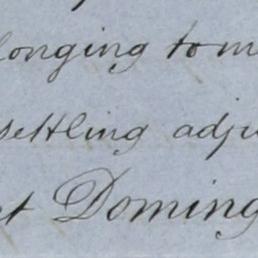 longing to m
settling adju
t Doming